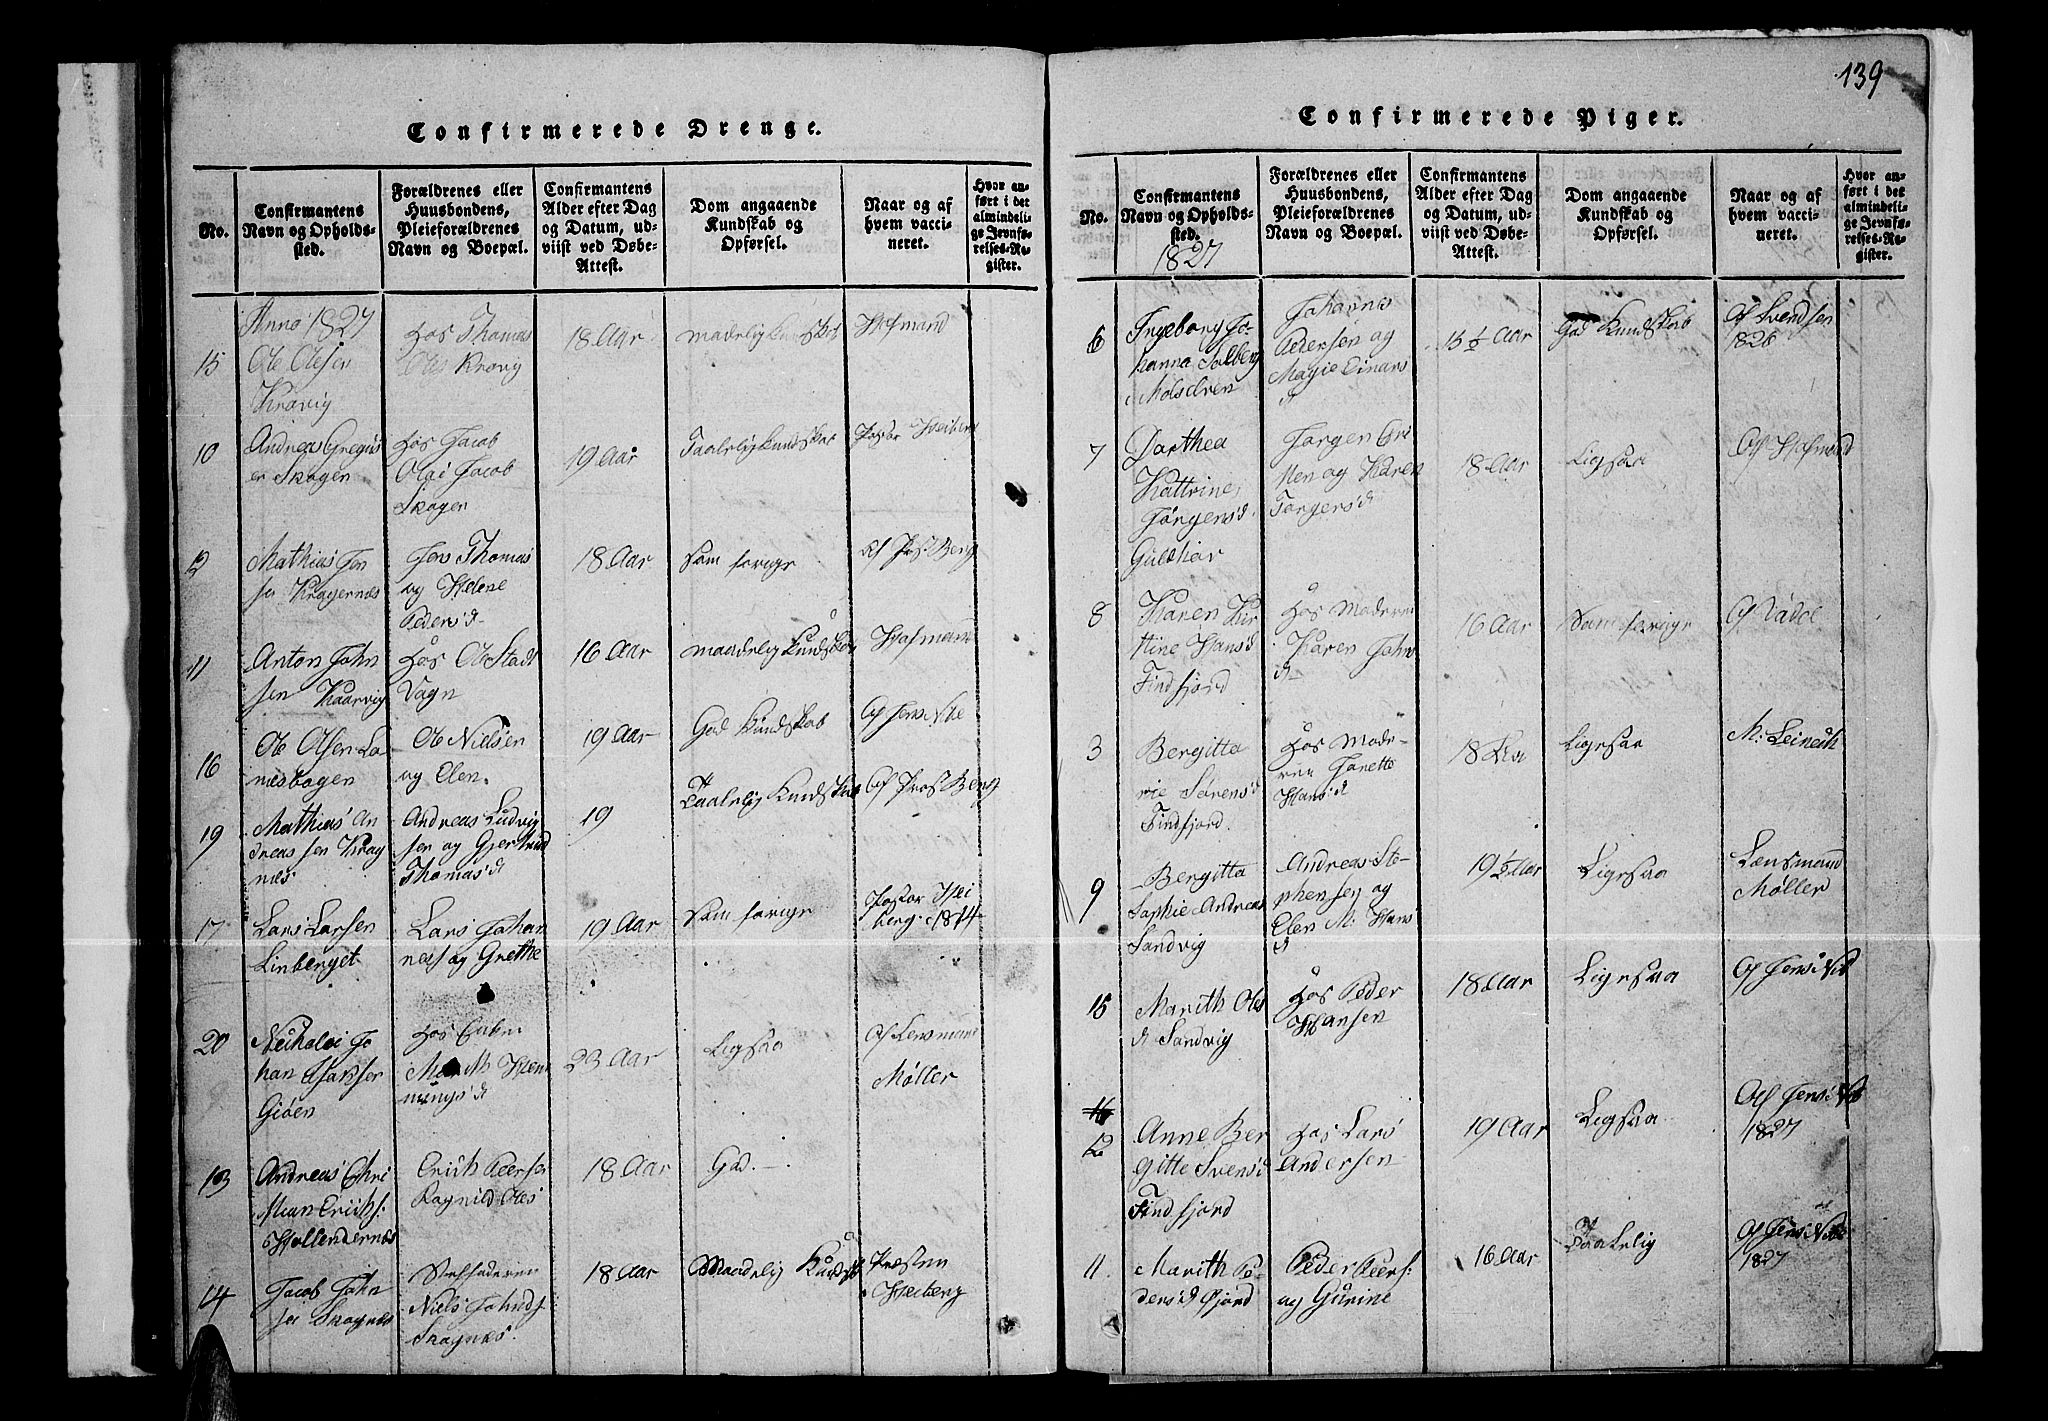 139
Confirmerede Drenge.
No.
Confirmantens
Navn og Opholds-
sted.
Forældrenes eller
Huusbondens,
Pleieforældrenes
Navn og Boepæl.
Confirmantens
Alder efter Dag
og Datum, ud-
viist ved Døbe-
Attest.
Dom angaaende
Kundskab og
Opførsel.
Naar og af
hvem vacci-
neret.
Hvor an-
ført i det
almindeli-
ge Jevnfø-
relses-Re-
gister.
Anno 1827
15
Ole Olsen
Kravig
hos Thomas
Ols Kravig
18 Aar
maadelig Kundskab
Hofmand
10
Andreas Gregus
er Skogen
hos Jacob
Olai Jacob
Skogen
19 Aar
Taalelig Kundskab
Pastor Heiberg
12
Mathias Jen
sen Kragernæs
Jens Thomas
og Helene
Peders d
18 Aar
som forige
af Pros. Berg
11
Anton John
sen Kaarvig
hos Ole Stad
Vagn
16 Aar
maadelig Kundskab
Hofmann
16
Ole Olsen La
nesbogen
Ole Nielsen
og Elen.
19 Aar
God Kundskab
af Jens Nibe
19
Mathias An
dreas sen Krag
næs
Andreas Ludvig
sen og Gjertrud
Thomas d
19
Taalelig Kundskab
af Pros Berg
17
Lars Larsen
Linberget
Lars Johan
nes og Grethe
19 Aar
som forige
Pastor Hei
berg 1814
20
Nicholai Jo
han Isaksen
Giøen
hos Enken
Mar M. Hem
mings d
23 Aar
Ligsaa
af Lensmand
Møller
13
Andreas Chri
stian Erichs:
Hollendernæs
Erich Peersen
Ragnild Ols
18 Aar
God.
14
Jacob John
sen Skognæs
Niels Johns
Skognæs.
18 Aar
Maadelig Kundsk
Præsten
Heiberg
Confirmerede Piger.
No.
Confirmantens
Navn og Opholds-
sted.
1827
Forældrenes eller
Huusbondens,
Pleieforældrenes
Navn og Boepæl.
Confirmantens
Alder efter Dag
og Datum, ud-
viist ved Døbe-
Attest.
Dom angaaende
Kundskab og
Opførsel.
Naar og af
hvem vacci-
neret.
Hvor an-
ført i det
almindeli-
ge Jevnfø-
relses-Re-
gister.
6
Ingeborg Jo-
hanna Solberg
Molselven
Johannes
Pedersen og
Magie Einars
d
15 ½ Aar
God Kundskab
Af Svendsen
1826
7
Dorthea
Kattrine
Jørgens d.
Guleskar
Jørgen Cri
sten og Karen
Torgers d
18 Aar
Ligesaa
Af Hofmand
8
Karen Kir
stine Hans d
Findfjord
Hos Moderen
Karen Johns
d
16 Aar
Som forige
Af
3
Bergitta
Sørens d
Findfjord.
hos Mode-
ren Janette
Hans d
18 Aar
Ligesaa
9
Bergitta
Sophie Andreas
Sandvig
Andreas Ste-
phensen og
Elen M. Hans
d
19 ½ Aar
Ligesaa
Lænsmand
Møller
15
Marith Ols
d Sandvig
hos Peder
Hansen
18 Aar
Ligesaa
Af Jens Nib
12
Anne Ber
gitte Svens d
Findfjord
hos Lars
Andersen
19 Aar
Ligsaa
Af Jens Nib
1827
11
Marith Pe-
ders d Øjord
Peder Peers:
og Gurine
16 Aar
Taalelig
Af Jens Nibe
1827